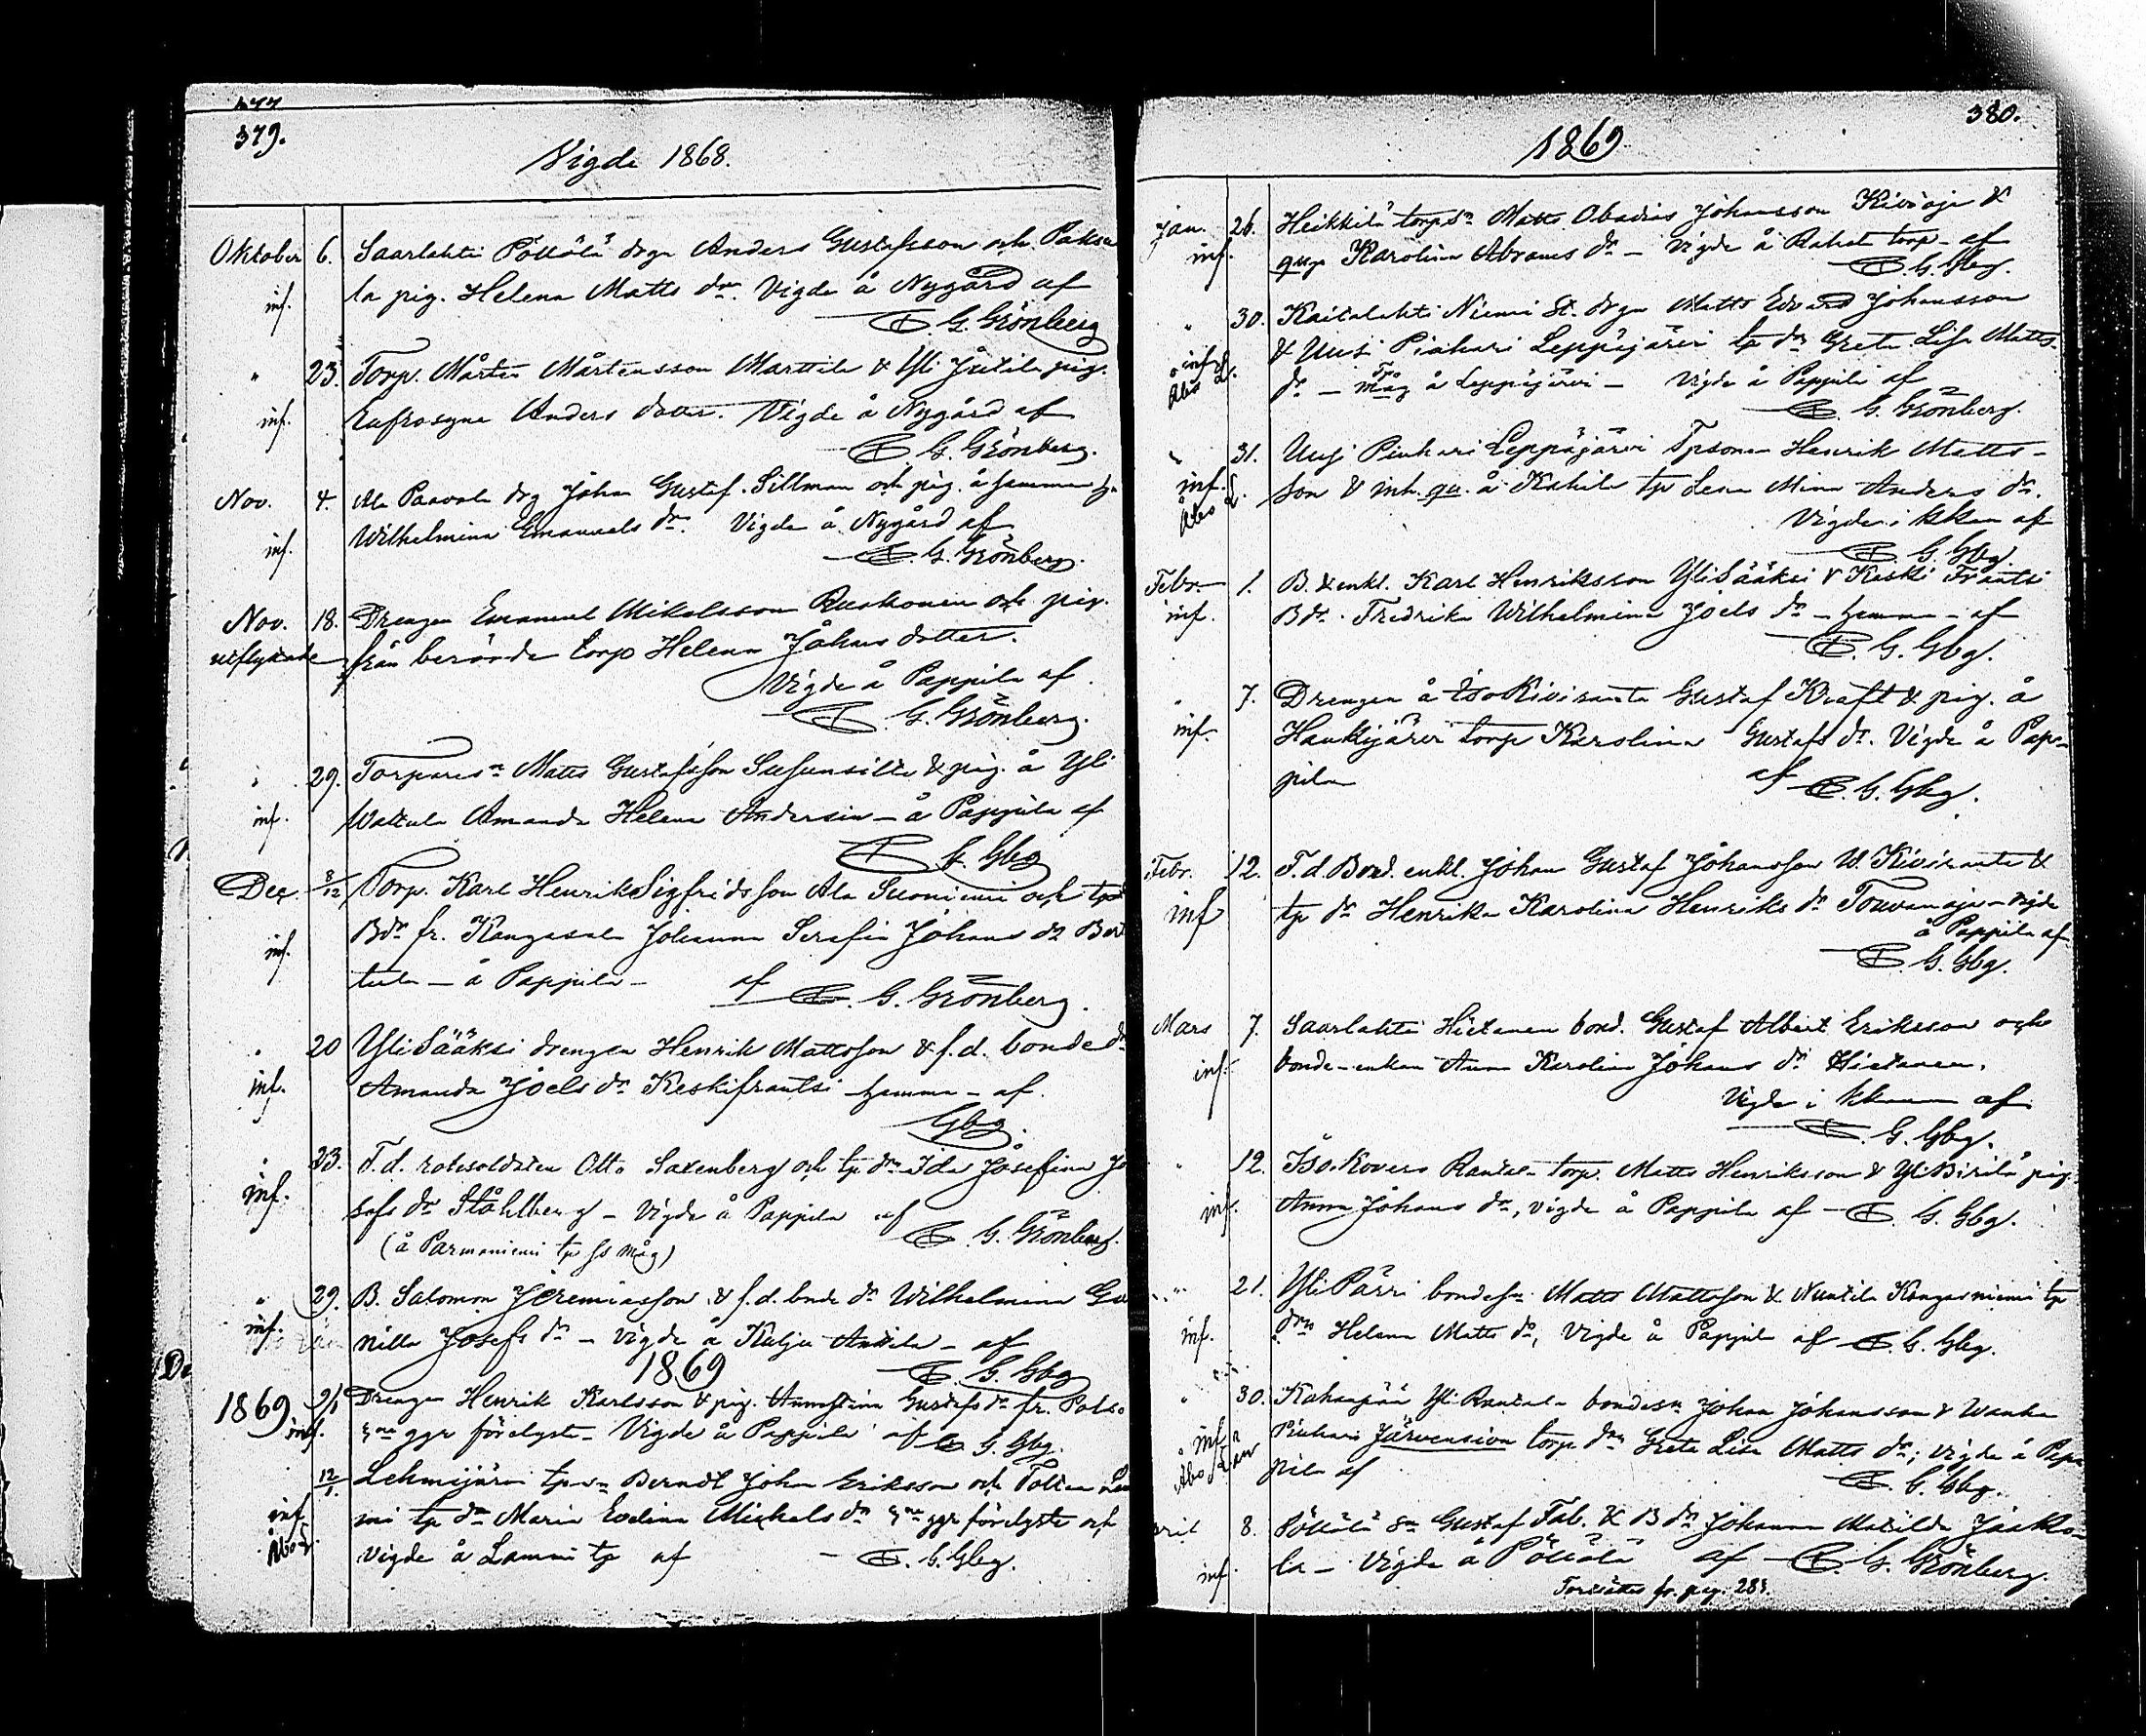 377
379.
Vigde 1868.
Oktober 6. Saarlahti Pöllölä drgn Anders Gustafsson och Paksu
inf. la pig. Helena Matts dr. Vigde å Nygård af
G. Grönberg
" 23. Torp. Mårten Mårtensson Marttila & Yli Jutila pig.
inf. Eufrosyna Anders dotter. Vigde å Nygård af
G. Grönberg.
Nov. 4. Ala Paavola drg Johan Gustaf Sillman och pig. å samma
inf. Wilhelmina Emanuels dr. Vigde å Nygård af
G. Grönberg.
Nov. 18. Drengen Emanuel Mikelsson Ruskonen och pig.
utflyttade från berörde torp Helena Johans dotter.
Vigde å Pappila af
G. Grönberg.
29. Torparesn Matts Gustafsson & pig. å Yli
inf. Wattula Amanda Helena Andersin – å Pappila af
G. Gbg
Dec. 8/12 Torp. Karl Henrik Sigfridsson Ala Suoniemi och
inf. Bdr fr. Kangasala Johanna Serafia Johans dr
tula – å Pappila – af G. Grönberg.
" 20 Yli Sääksi drengen Henrik Mattsson & f.d. bonde dr
inf. Amanda Joels dr Keskifrantsi hemma – af
Gbg.
" 23. F.d. rotesoldaten Otto Saxenberg och tp dr Ida Josefina Jo
inf. sefs dr Ståhlberg – Vigde å Pappila af G. Grönberg.
(å Parmaniemi tp måg)
" 29. B. Salomon Jeremiasson & f.d. bnde dr Wilhelmina Gu
inf. nilla Josefs dr – vigde å Kulju Anttila – af
1869 G. Gbg
1869 2/1 Drengen Henrik Karlsson & pig. Annastina Gustafs dr fr. Polso
inf. ggr förelyste – Vigde å Pappila af G. Gbg.
12/1. Lehmijärvi tp sn Berndt Johan Eriksson och
inf. mi tp dr Maria Evelina Mickels dr ggr förelyste och
Vigde å Lammi tp af G. Gbg.
380.
1869
Jan. 26. Heikkilä torpsn Matts Obadias Johansson Kivioja &
inf. qvp Karolina Abrams dr – Vigde å torp – af
G. Gbg.
" 30. Kaitalahti Niemi St. drgn Matts Edvard Johansson
inf & Uusi Pinhari Leppäjärvi tp dr Greta Lisa Matts
Åbo L. dr – måg å Leppäjärvi – Vigde å Pappila af
G. Grönberg.
" 31. Uusi Pinhari Leppäjärvi Tpsonen Henrik Matts-
inf. son & inh. qv. å Kahila tp Lena Mina Anders dr.
Åbo L. Vigde i kkan af
G. Gbg
Febr. 1. B. & enkl. Karl Henriksson Yli Sääksi & Keski Frantsi
inf. Bdr. Fredrika Wilhelmina Joels dr – hemma – af
G. Gbg.
" 7. Drengen å Iso Kiviranta Gustaf Kraft & pig. å
inf. Haukijärvi torp Karolina Gustafs dr. Vigde å Pap-
pila af G. Gbg.
Febr. 12. F.d. Bond. enkl. Johan Gustaf Johansson W. Kiviranta &
inf tp dr Henrika Karolina Henriks dr – vigde
å Pappila af
G. Gbg.
Mars 7. Saarlahti Hietanen bond. Gustaf Albert Eriksson och
inf. bonde-enkan Anna Karolina Johans dr Hietanen.
Vigde i kkan af
G. Gbg.
" 12. Iso Kovero Rantala torp. Matts Henriksson & Yli Birilä pig.
inf. Anna Johans dr, vigde å Pappila af – G. Gbg.
" 21. Yli Pärri bondesn. Matts Mattsson & Nuutila Kangasniemi tp
inf. drn Helena Matts dr, Vigde å Pappila af G. Gbg.
" 30. Kahanpää Yli Rantala bondesn Johan Johansson & Wanha
inf. Pinhari Järvensivu torp drn Greta Lisa Matts dr; vigde å Pap-
pila af G. Gbg.
ril 8. Pöllölä sn Gustaf Fab. & B dr Johanna Matilda Jaakko-
inf. la – Vigde å Pöllölä af G. Grönberg.